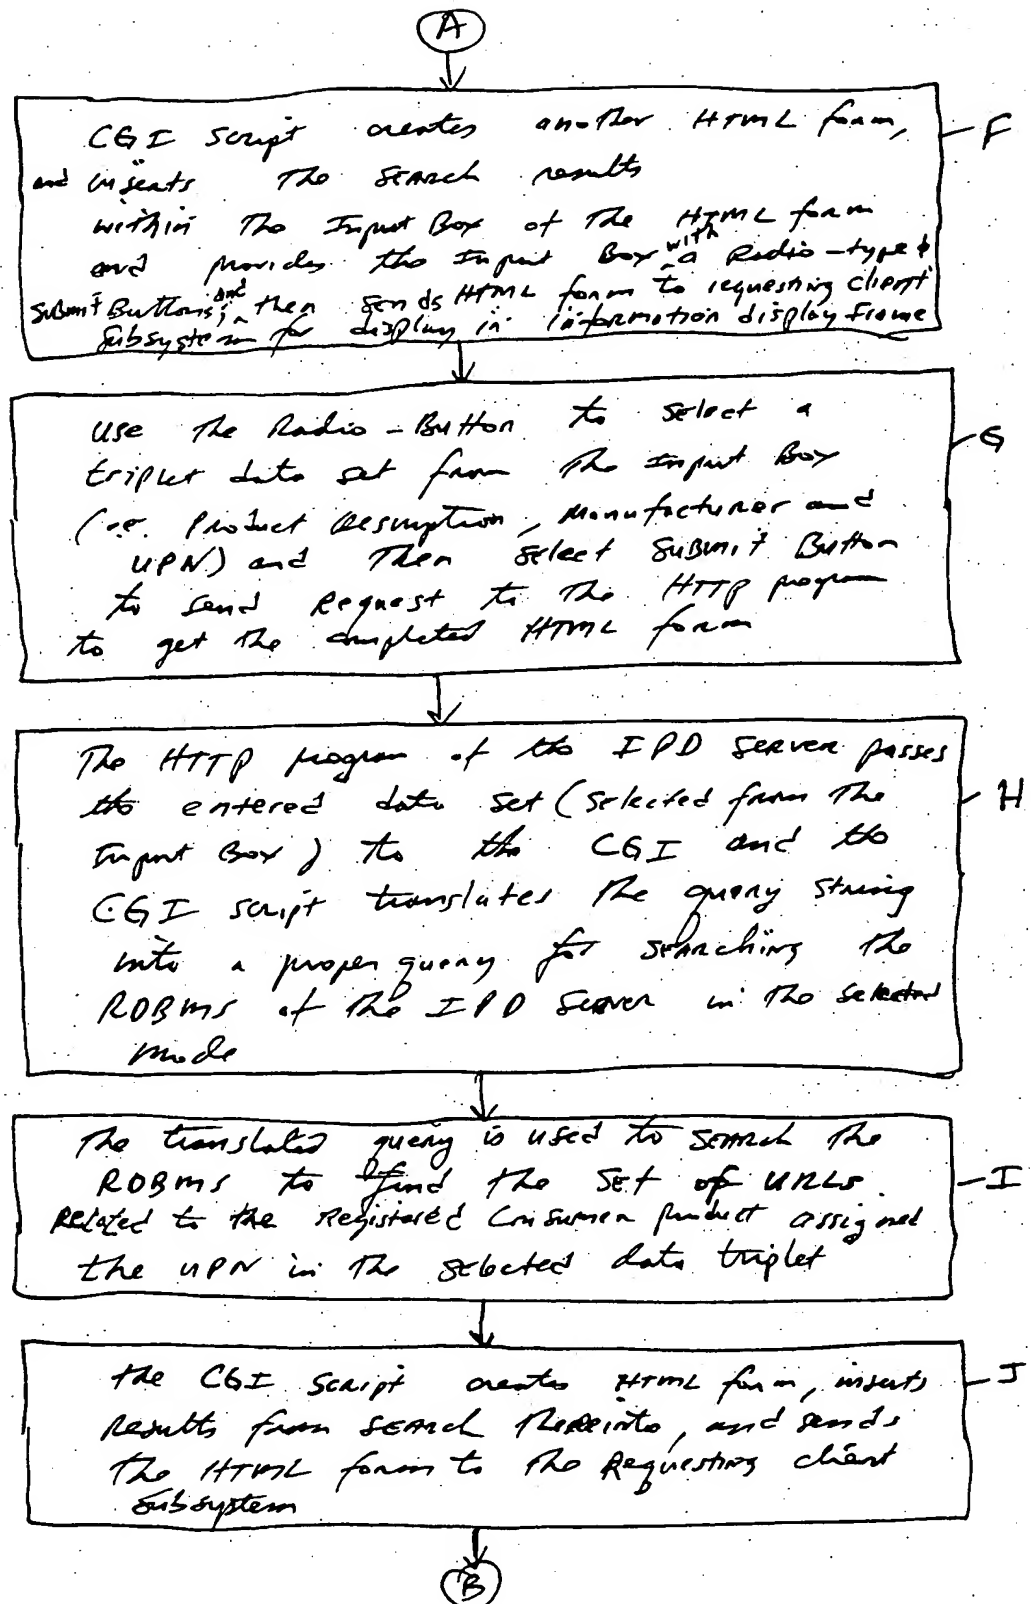 A
CGI Script creates another HTML form, F
and inserts the Search results
within the Input Box of the HTML form
and provides the Input Box with a Radio-type &
Submit Buttons; and then sends HTML form to requesting client
Subsystem for display in information display frame
use the Radio-Button to select a
triplet data set from the Input Box G
(i.e. Product Description, Manufacturer and
UPN) and Then select Submit Button
to send Request to the HTTP program
to get the completed HTML form
The HTTP program of the IPD Server passes
the entered data set (selected from the H
Input Box) to the CGI and the
CGI script translates the query string
into a proper query for searching the
RDBMS of the IPD Server in the selected
mode
The translated query is used to search the
RDBMS to find the set of URLs I
Related to the registered Consumer product assigned
the UPN in the selected data triplet
the CGI Script creates HTML form, inserts J
Results from search thereinto, and sends
The HTML form to the Requesting client
Subsystem
B